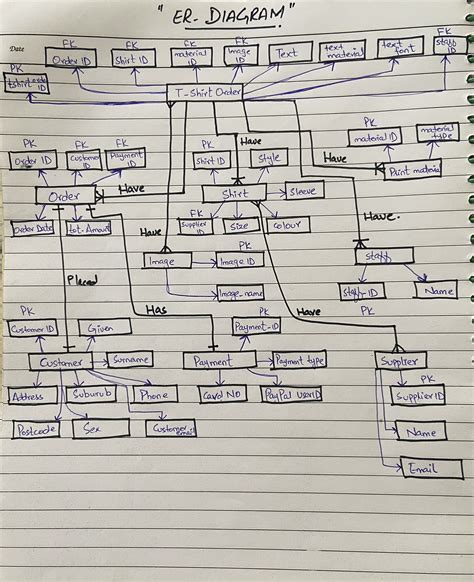 "ER-DIAGRAM"
Date
FK FK FK FK FK
Order ID Shirt ID material ID Image ID Text text material text font staff ID
PK
tshirt order ID
T-Shirt Order
PK FK FK
Order ID Customer ID Payment ID
PK
Shirt ID Style
Have
PK
material ID material type
Print material
Have
Order Have Shirt Sleeve
FK
Order Date tot. Amount Supplier ID Size Colour
Have Have.
PK
Image Image ID
Staff
Placed
Image_name
Staff-ID Name
PK
Has Have
PK PK
Customer ID Given Payment-ID
Customer Surname Payment Payment type Supplier
PK
Address Suburub Phone Card NO PayPal userID Supplier ID
Postcode Sex Customer email Name
Email